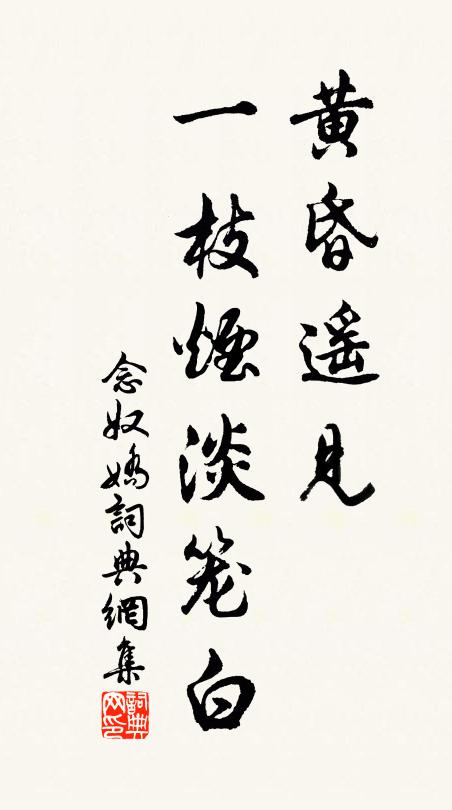 黄昏遥见
一枝煙淡笼白
念奴嬌詞典網集
詞典网印